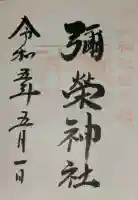 彌榮神社
令和五年五月一日